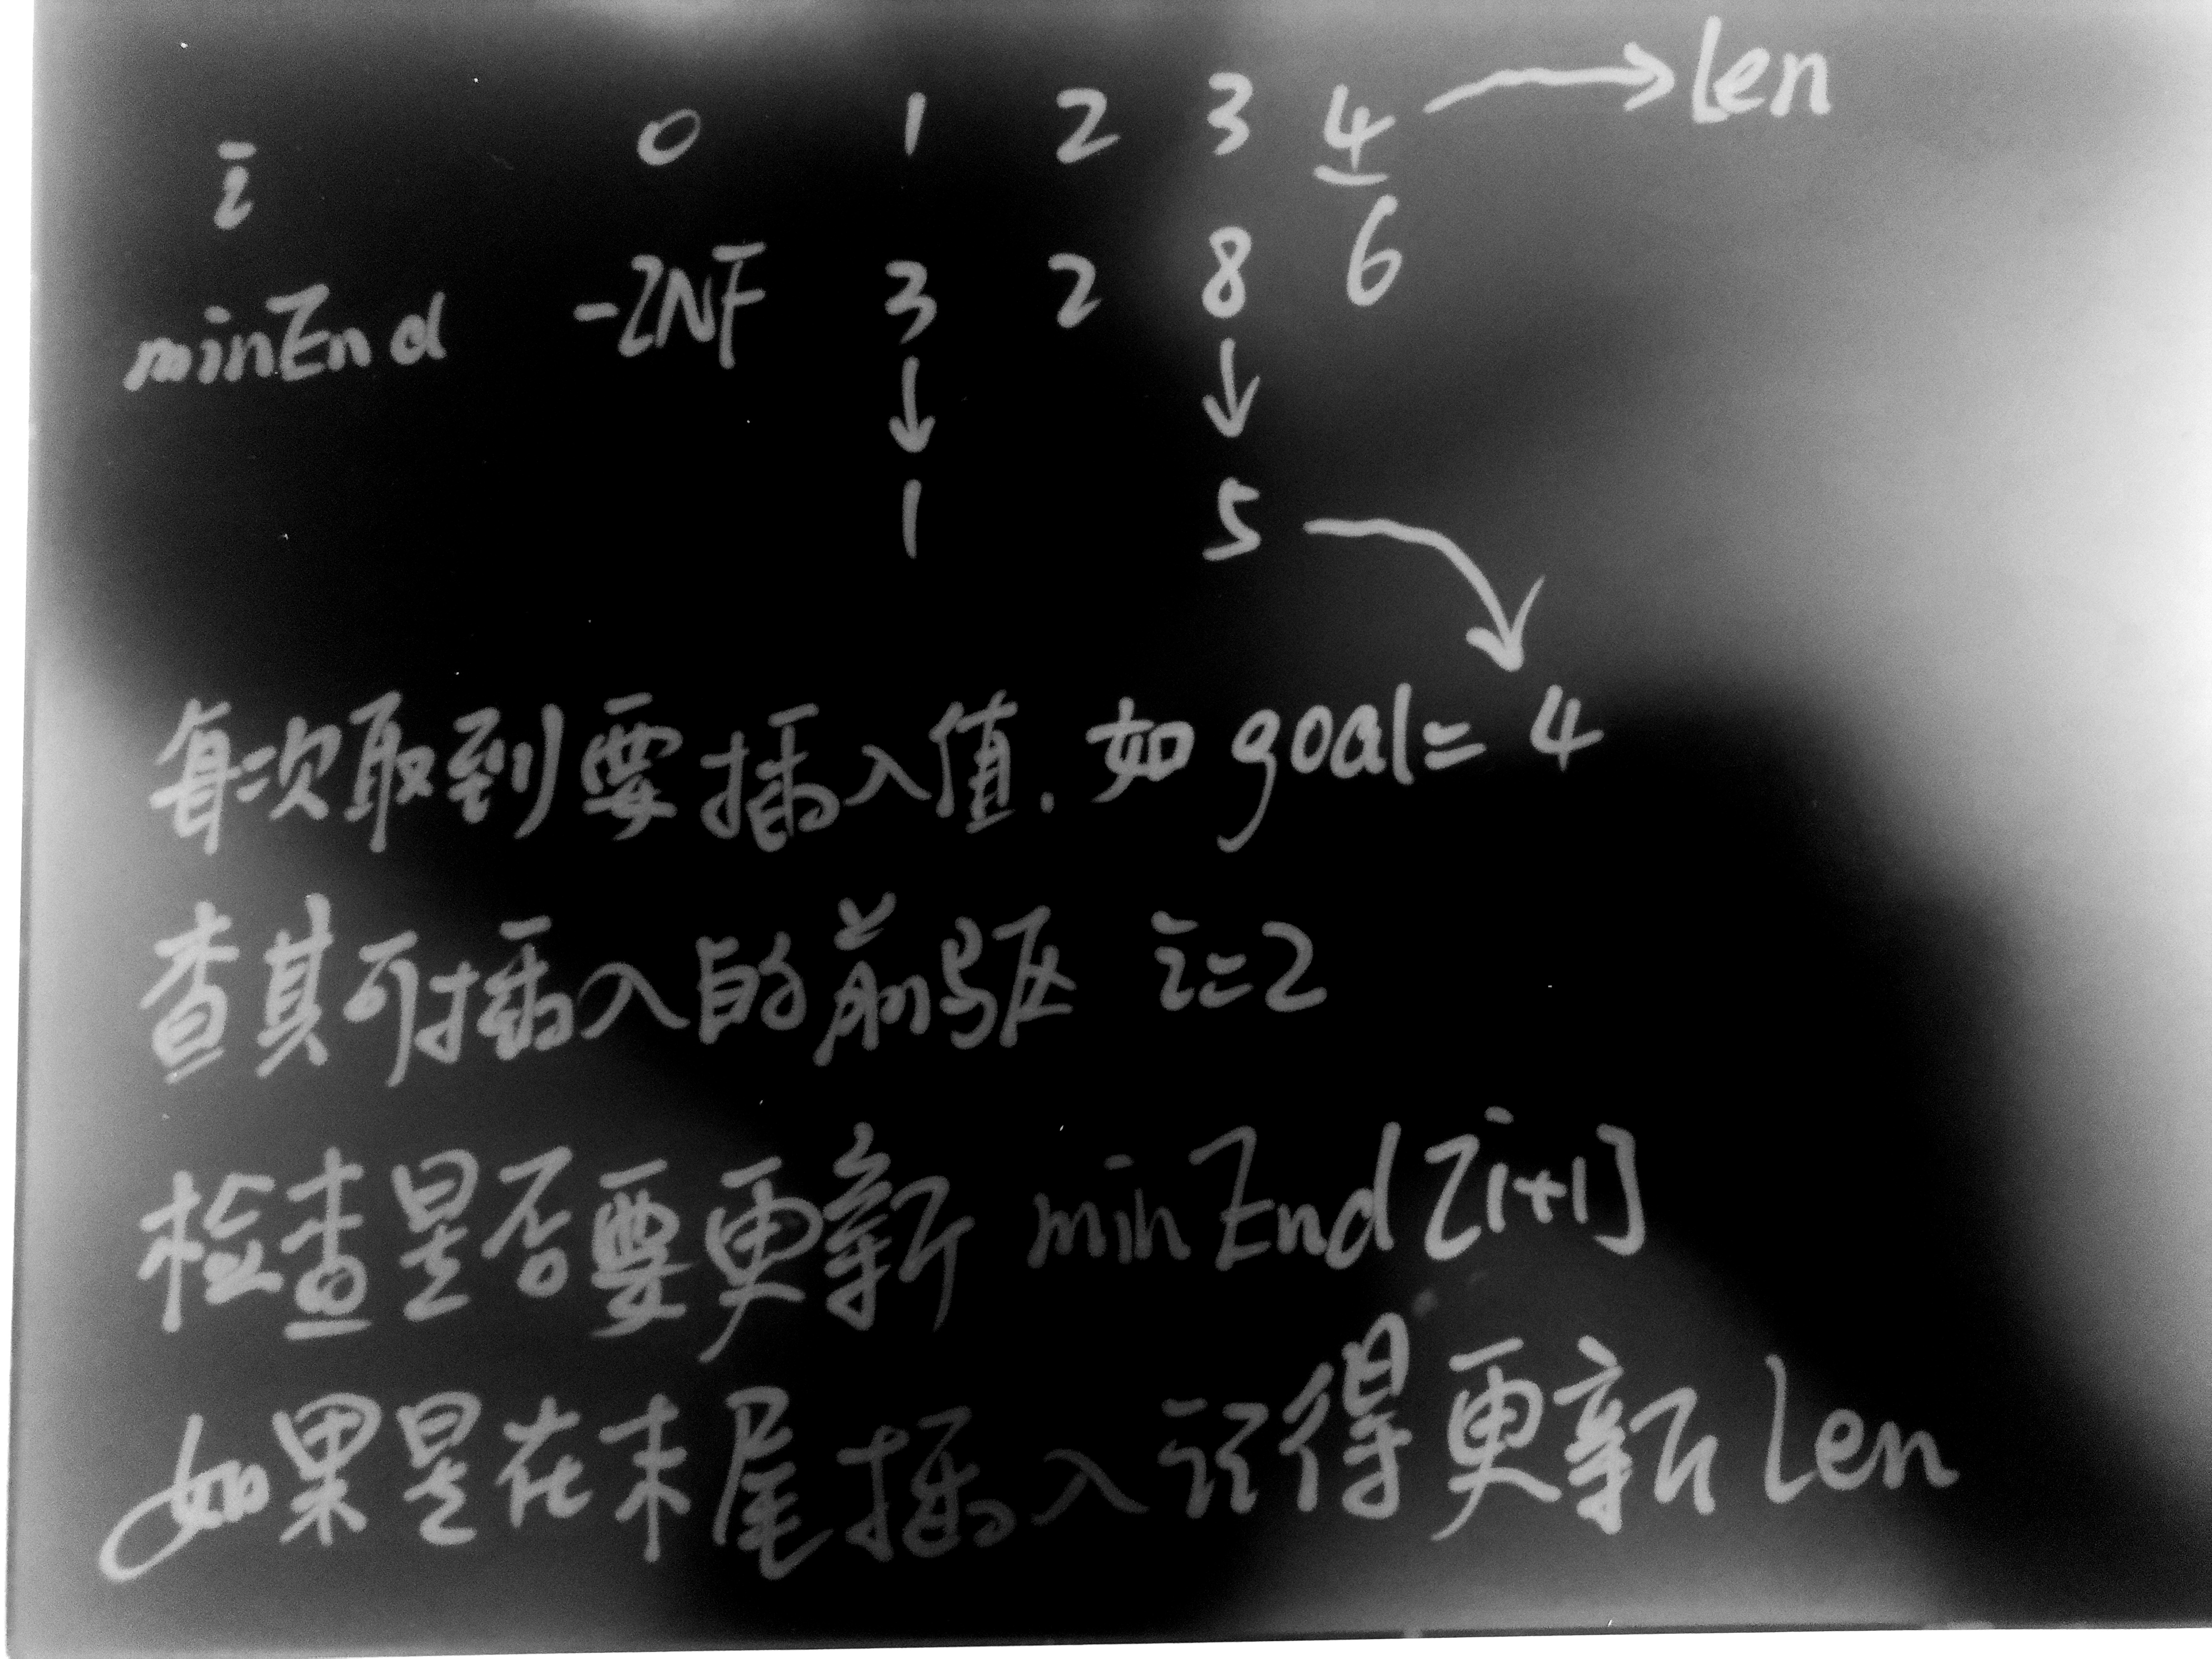 i 0 1 2 3 4 → len
minEnd -INF 3 2 8 6
↓ ↓
1 5
每次取到要插入值. 如 goal = 4
查其可插入的前驱 i=2
检查是否要更新 minEnd[i+1]
如果是在末尾插入记得更新 len